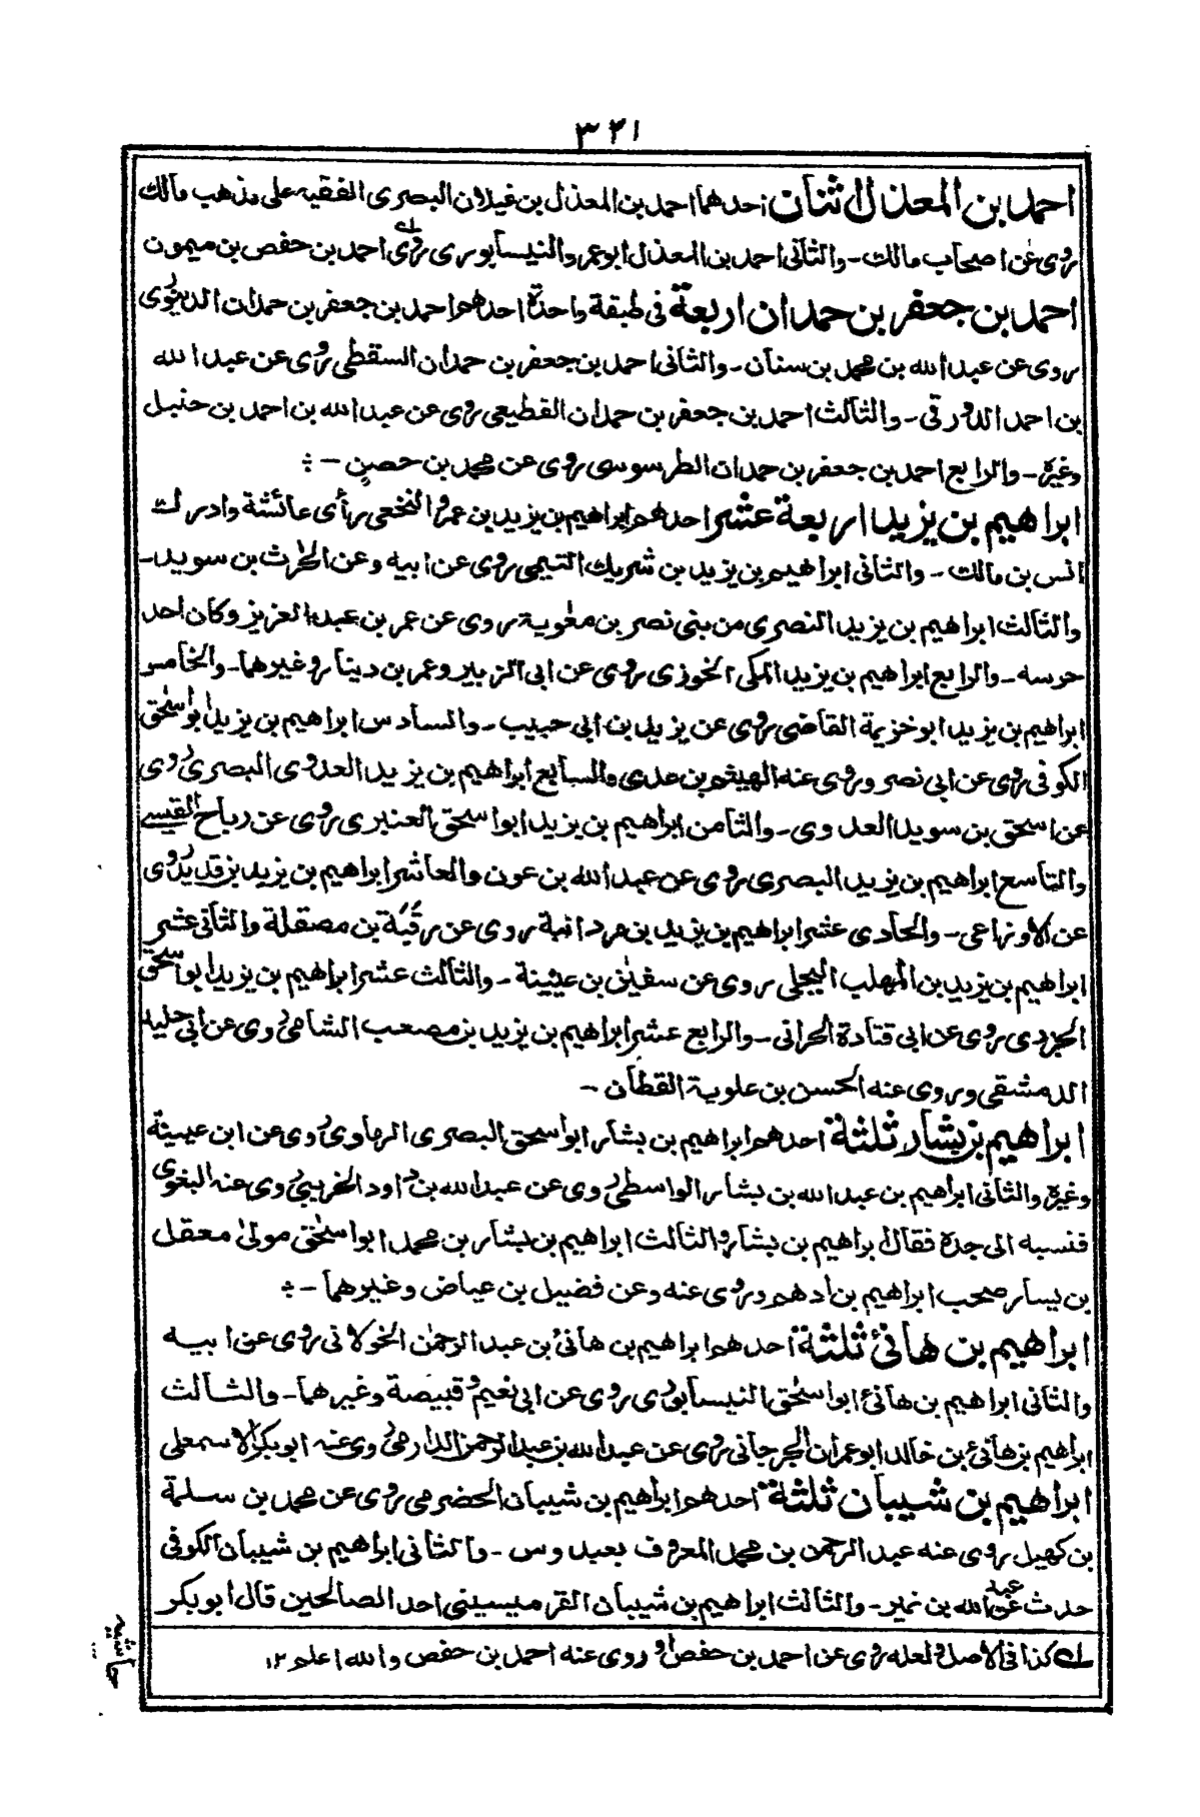 ٣٢١
احمد بن المعذل اثنان احدهما احمد بن المعذل بن غيلان البصرى الفقيه على مذهب مالك
روى عن اصحاب مالك ـ والثانى احمد بن المعذل ابو عمرو النيسابورى روى احمد بن حفص بن ميمون
احمد بن جعفر بن حمدان اربعة فى طبقة واحدة احدهم احمد بن جعفر بن حمدان الدينورى
روى عن عبد الله بن محمد بن سنان ـ والثانى احمد بن جعفر بن حمدان السقطى روى عن عبد الله
بن احمد الدورقى ـ والثالث احمد بن جعفر بن حمدان القطيعى روى عن عبد الله بن احمد بن حنبل
وغيره ـ والرابع احمد بن جعفر بن حمدان الطرسوسى روى عن محمد بن حصن ـ
ابراهيم بن يزيد اربعة عشر احدهم ابراهيم بن يزيد بن عمرو النخعى رأى عائشة وادرك
انس بن مالك ـ والثانى ابراهيم بن يزيد بن شريك التيمى روى عن ابيه وعن الحٰرث بن سويد ـ
والثالث ابراهيم بن يزيد النصرى من بنى نصر بن معٰوية روى عن عمر بن عبد العزيز وكان احد
حرسه ـ والرابع ابراهيم بن يزيد المكى الخوزى روى عن ابى الزبير وعمر بن دينار وغيرهما ـ والخامس
ابراهيم بن يزيد ابو خزيمة القاضى روى عن يزيد بن ابى حبيب ـ والسادس ابراهيم بن يزيد ابو اسحٰق
الكوفى روى عن ابى نصر وروى عنه الهيثم بن عدى والسابع ابراهيم بن يزيد العدوى البصرى روى
عن اسحق بن سويد العدوى ـ والثامن ابراهيم بن يزيد ابو اسحق العنبرى روى عن رباح القيسى
والتاسع ابراهيم بن يزيد البصرى روى عن عبد الله بن عون والعاشر ابراهيم بن يزيد بن قديد روى
عن الاوزاعى ـ والحادى عشر ابراهيم بن يزيد بن مردانبة روى عن رقبة بن مصقلة والثانى عشر
ابراهيم بن يزيد بن المهلب البجلى روى عن سفيٰن بن عيينة ـ والثالث عشر ابراهيم بن يزيد ابو اسحٰق
الجزرى روى عن ابى قتادة الحرانى ـ والرابع عشر ابراهيم بن يزيد بن مصعب الشامى روى عن ابى خليد
الدمشقى وروى عنه الحسن بن علوية القطان ـ
ابراهيم بن بشار ثلثة احدهم ابراهيم بن بشار ابو اسحق البصرى الرمادى روى عن ابن عيينة
وغيره والثانى ابراهيم بن عبد الله بن بشار الواسطى روى عن عبد الله بن داود الخريبى روى عنه البغوى
فنسبه الى جده فقال ابراهيم بن بشار والثالث ابراهيم بن بشار بن محمد ابو اسحٰق مولىٰ معقل
بن يسار صحب ابراهيم بن ادهم وروى عنه وعن فضيل بن عياض وغيرهما ـ
ابراهيم بن هانئ ثلثة احدهم ابراهيم بن هانئ بن عبد الرحمٰن الخولانى روى عن ابيه
والثانى ابراهيم بن هانئ ابو اسحٰق النيسابورى روى عن ابى نعيم و قبيصة وغيرهما ـ والثالث
ابراهيم بن هانئ بن خالد ابو عمران الجرجانى روى عن عبد الله بن عبد الرحمن الدارمى روى عنه ابو بكر الاسمعلى
ابراهيم بن شيبان ثلثة احدهم ابراهيم بن شيبان الحضرمى روى عن محمد بن سلمة
بن كهيل روى عنه عبد الرحمن بن محمد المعروف بعبدوس ـ والثانى ابراهيم بن شيبان الكوفى
حدث عن عبد الله بن نمير ـ والثالث ابراهيم بن شيبان القرميسينى احد الصالحين قال ابو بكر
ـله كذا فى الاصل ولعله روى عن احمد بن حفص او روى عنه احمد بن حفص والله اعلم ١٢
حاشيه